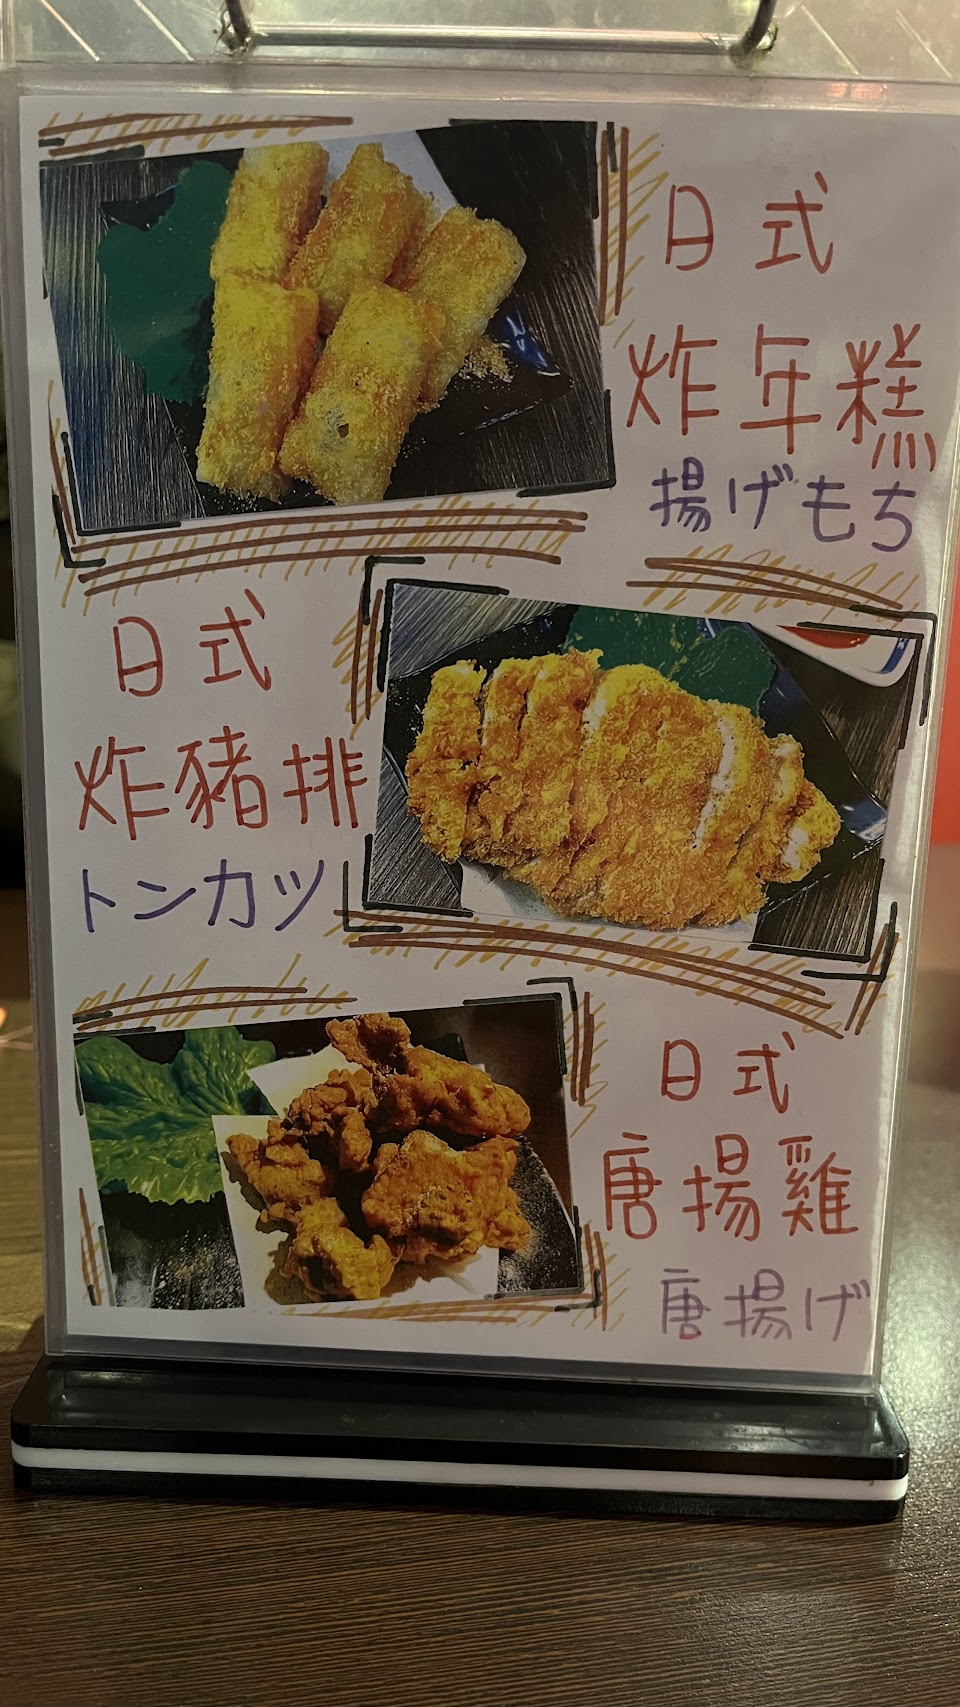 日式
炸年糕
揚げもち
日式
炸豬排
トンカツ
日式
唐揚雞
唐揚げ